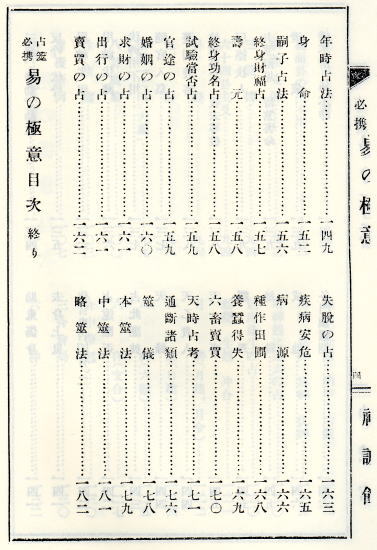 必携 易の極意
四
年時占法 一四九
身命 一五二
嗣子占法 一五六
終身財福占 一五七
壽元 一五八
終身功名占 一五八
試驗當否占 一五九
官途の占 一五九
婚姻の占 一六〇
求財の占 一六一
出行の占 一六一
賣買の占 一六二
失脱の占 一六三
疾病安危 一六五
病源 一六六
種作田圃 一六八
養蠶得失 一六九
六畜賣買 一七〇
天時占考 一七一
通斷諸類 一七六
筮儀 一七八
本筮法 一七九
中筮法 一八一
略筮法 一八二
占筮必携 易の極意目次 終り